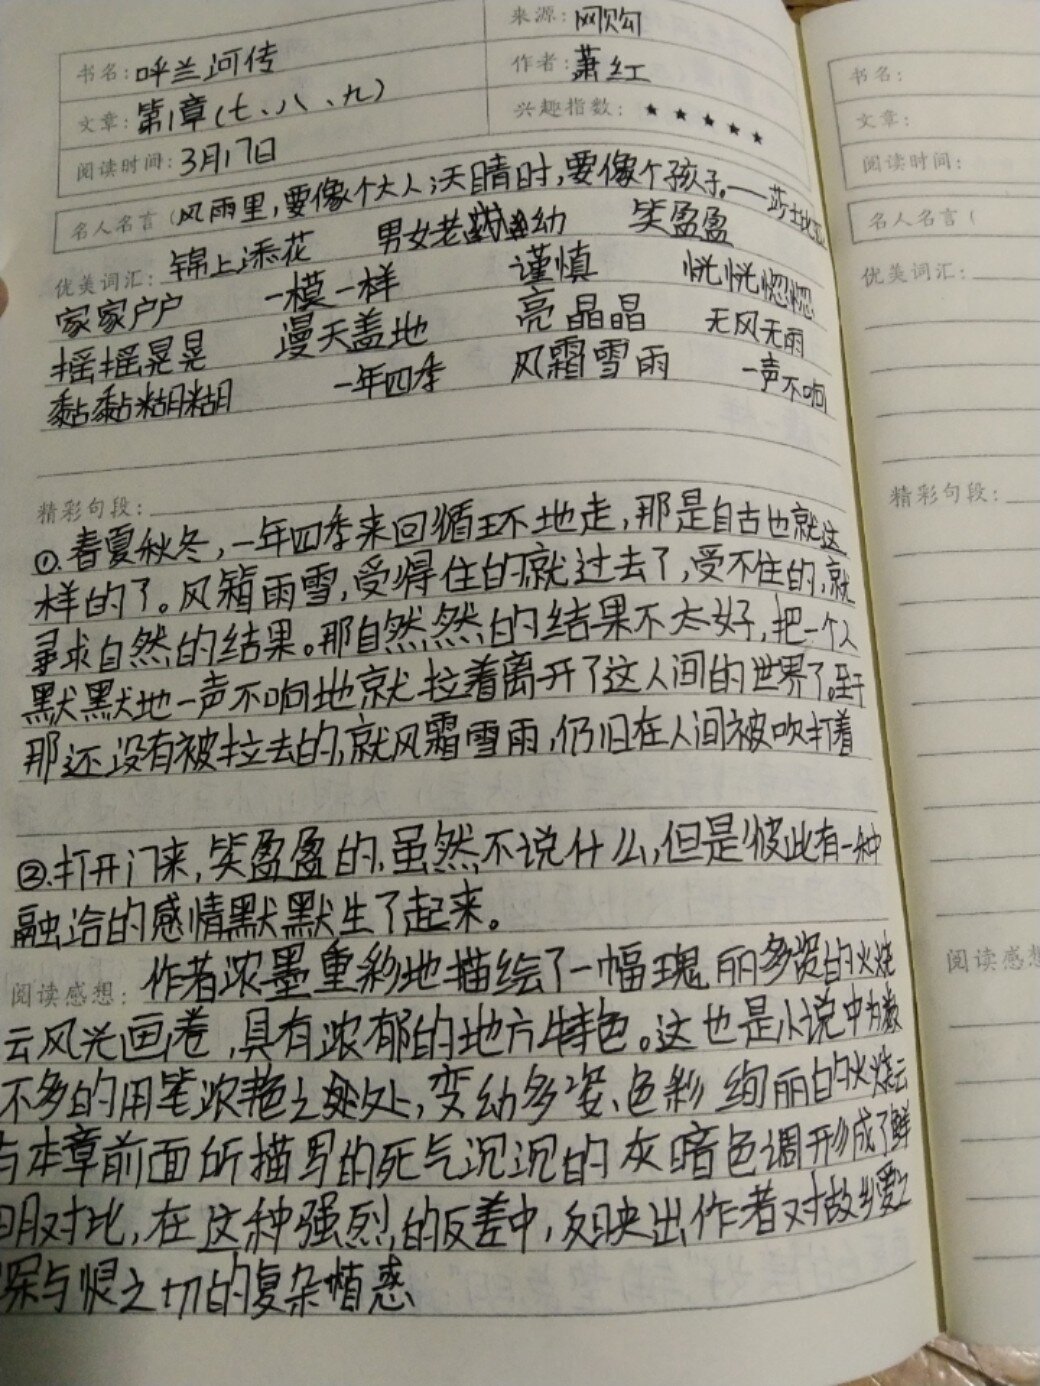 来源：网购
书名：呼兰河传
作者：萧红
文章：第1章(七、八、九)
兴趣指数：★★★★★
阅读时间：3月17日
名人名言（风雨里，要像个大人；天晴时，要像个孩子。——莎士比亚
优美词汇：锦上添花 男女老幼 笑盈盈
家家户户 一模一样 谨慎 恍恍惚惚
摇摇晃晃 漫天盖地 亮晶晶 无风无雨
黏黏糊糊 一年四季 风霜雪雨 一声不响
精彩句段：
①.春夏秋冬，一年四季来回循环地走，那是自古也就这
样的了。风箱雨雪，受得住的就过去了，受不住的，就
寻求自然的结果。那自然然的结果不太好，把一个人
默默地一声不响地就拉着离开了这人间的世界了。至于
那还没有被拉去的，就风霜雪雨，仍旧在人间被吹打着
②.打开门来，笑盈盈的，虽然不说什么，但是彼此有一种
融洽的感情默默生了起来。
阅读感想：作者浓墨重彩地描绘了一幅瑰丽多姿的火烧
云风光画卷，具有浓郁的地方特色。这也是小说中为数
不多的用笔浓艳之处，变幼多姿、色彩绚丽的火烧云
与本章前面所描写的死气沉沉的灰暗色调形成了鲜
明对比，在这种强烈的反差中，反映出作者对故乡爱之
深与恨之切的复杂情感
书名：
文章：
阅读时间：
名人名言（
优美词汇：
精彩句段：
阅读感想